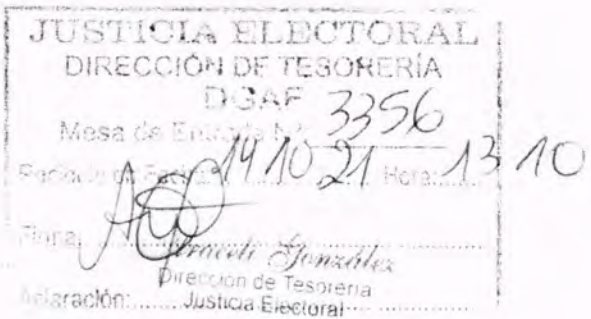 JUSTICIA ELECTORAL
DIRECCIÓN DE TESORERÍA
DGAF
Mesa de Entrada Nº: 3356
Recibido en Fecha: 14 10 21 Hora: 13 10
Firma:
Araceli González
Dirección de Tesorería
Aclaración: Justicia Electoral